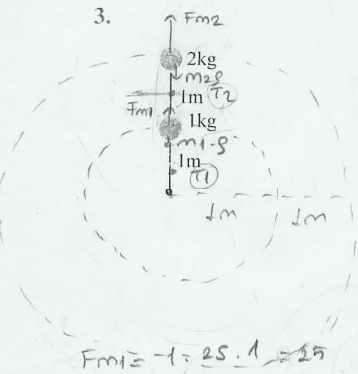 3.
Fm2
2kg
m2g
1m T2
Fm1
1kg
m1.g
1m
T1
1m 1m
Fm1 = 1 = 25 . 1 = 25